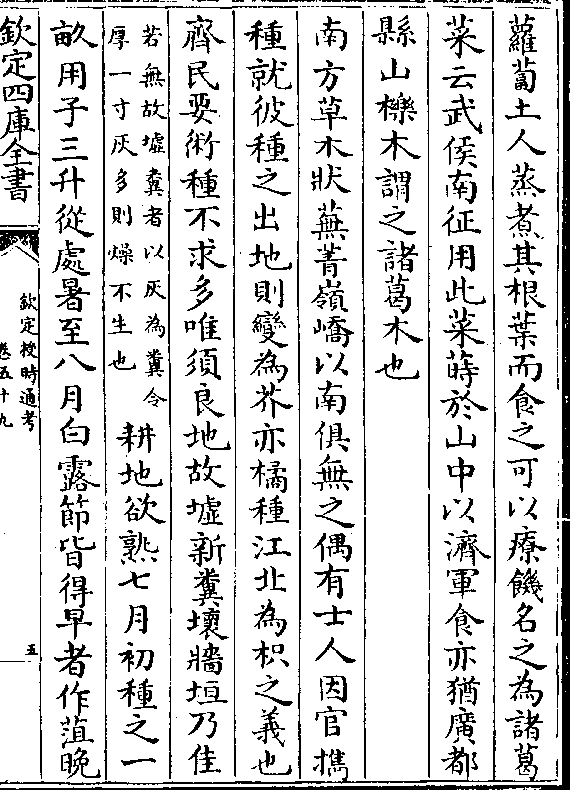 蘿蔔土人蒸煮其根葉而食之可以療饑名之為諸葛
菜云武侯南征用此菜蒔於山中以濟軍食亦猶廣都
縣山櫟木謂之諸葛木也
南方草木狀蕪菁嶺嶠以南俱無之偶有士人因官攜
種就彼種之出地則變為芥亦橘種江北為枳之義也
齊民要術種不求多唯須良地故墟新糞壞牆垣乃佳
若無故墟糞者以灰為糞令
厚一寸灰多則燥不生也
耕地欲熟七月初種之一
畝用子三升從處暑至八月白露節皆得早者作葅晚
欽定四庫全書
欽定授時通考
卷五十九
五